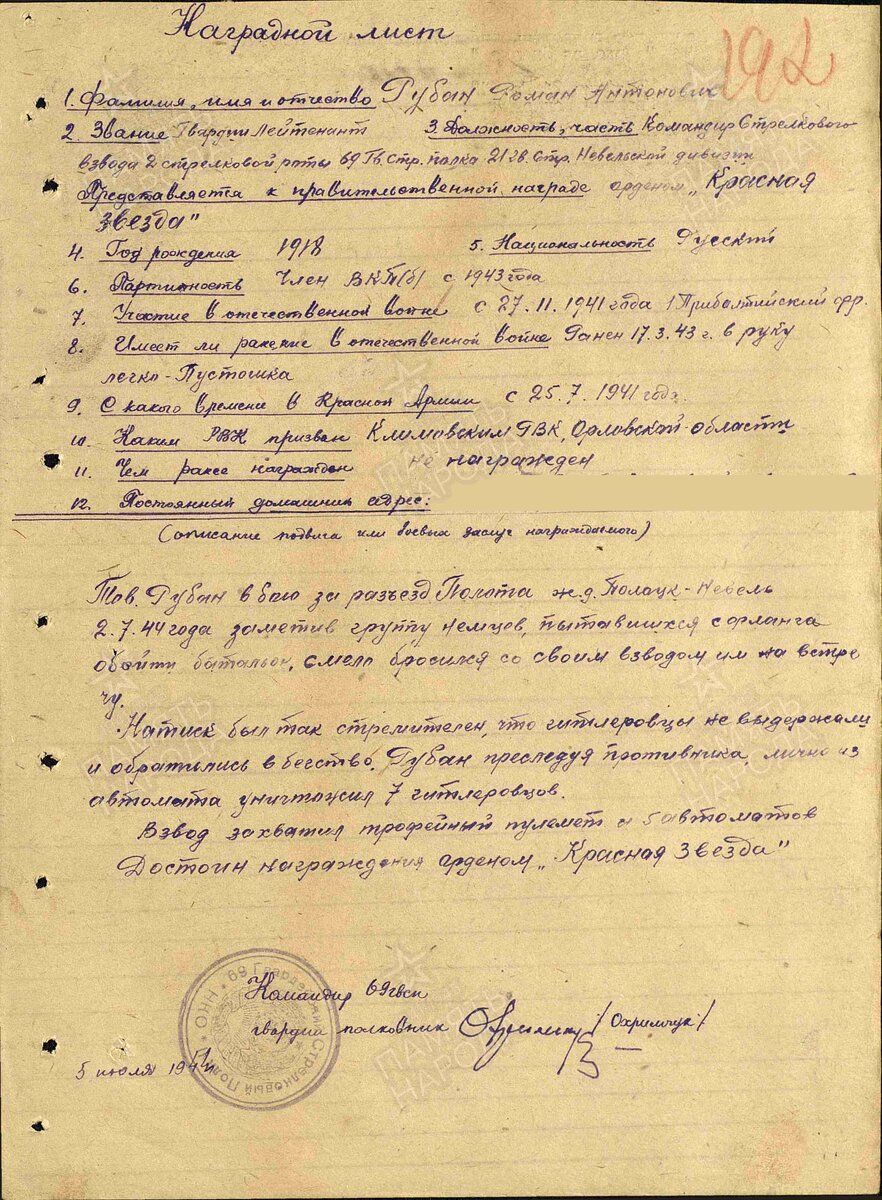 Наградной лист
192
1. Фамилия, имя и отчество Рубан Роман Антонович
2. Звание Гвардии Лейтенант 3. Должность, часть Командир Стрелкового
взвода 2 стрелковой роты 69 Гв. Стр. полка 21 гв. Стр. Невельской дивизии
Представляется к правительственной награде орденом „Красная
Звезда"
4. Год рождения 1918 5. Национальность Русский
6. Партийность Член ВКП(б) с 1943 года
7. Участие в отечественной войне с 27.11.1941 года 1 Прибалтийский фр.
8. Имеет ли ранение в отечественной войне Ранен 17.3.43 г. в руку
легко - Пустошка
9. С какого времени в Красной Армии с 25.7.1941 года
10. Каким РВК призван Климовским РВК, Орловской области
11. Чем ранее награжден не награжден
12. Постоянный домашний адрес:
(описание подвига или боевых заслуг награждаемого)
Тов. Рубан в бою за разъезд Полота ж.д. Полоцк-Невель
2.7.44 года заметив группу немцев, пытавшихся с фланга
обойти батальон, смело бросился со своим взводом им на встре
чу.
Натиск был так стремителен, что гитлеровцы не выдержали
и обратились в бегство. Рубан преследуя противника, лично из
автомата уничтожил 7 гитлеровцов.
Взвод захватил трофейный пулемет и 5 автоматов
Достоин награждения орденом „Красная Звезда"
Командир 69 гвсп
гвардии полковник /Охримчук/
5 июля 1944
69 Гвардейский Стрелковый Полк
ПАМЯТЬ НАРОДА